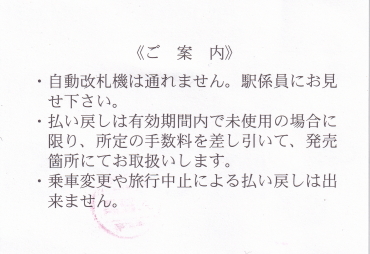 《ご 案 内》
・自動改札機は通れません。駅係員にお見
せ下さい。
・払い戻しは有効期間内で未使用の場合に
限り、所定の手数料を差し引いて、発売
箇所にてお取扱いします。
・乗車変更や旅行中止による払い戻しは出
来ません。